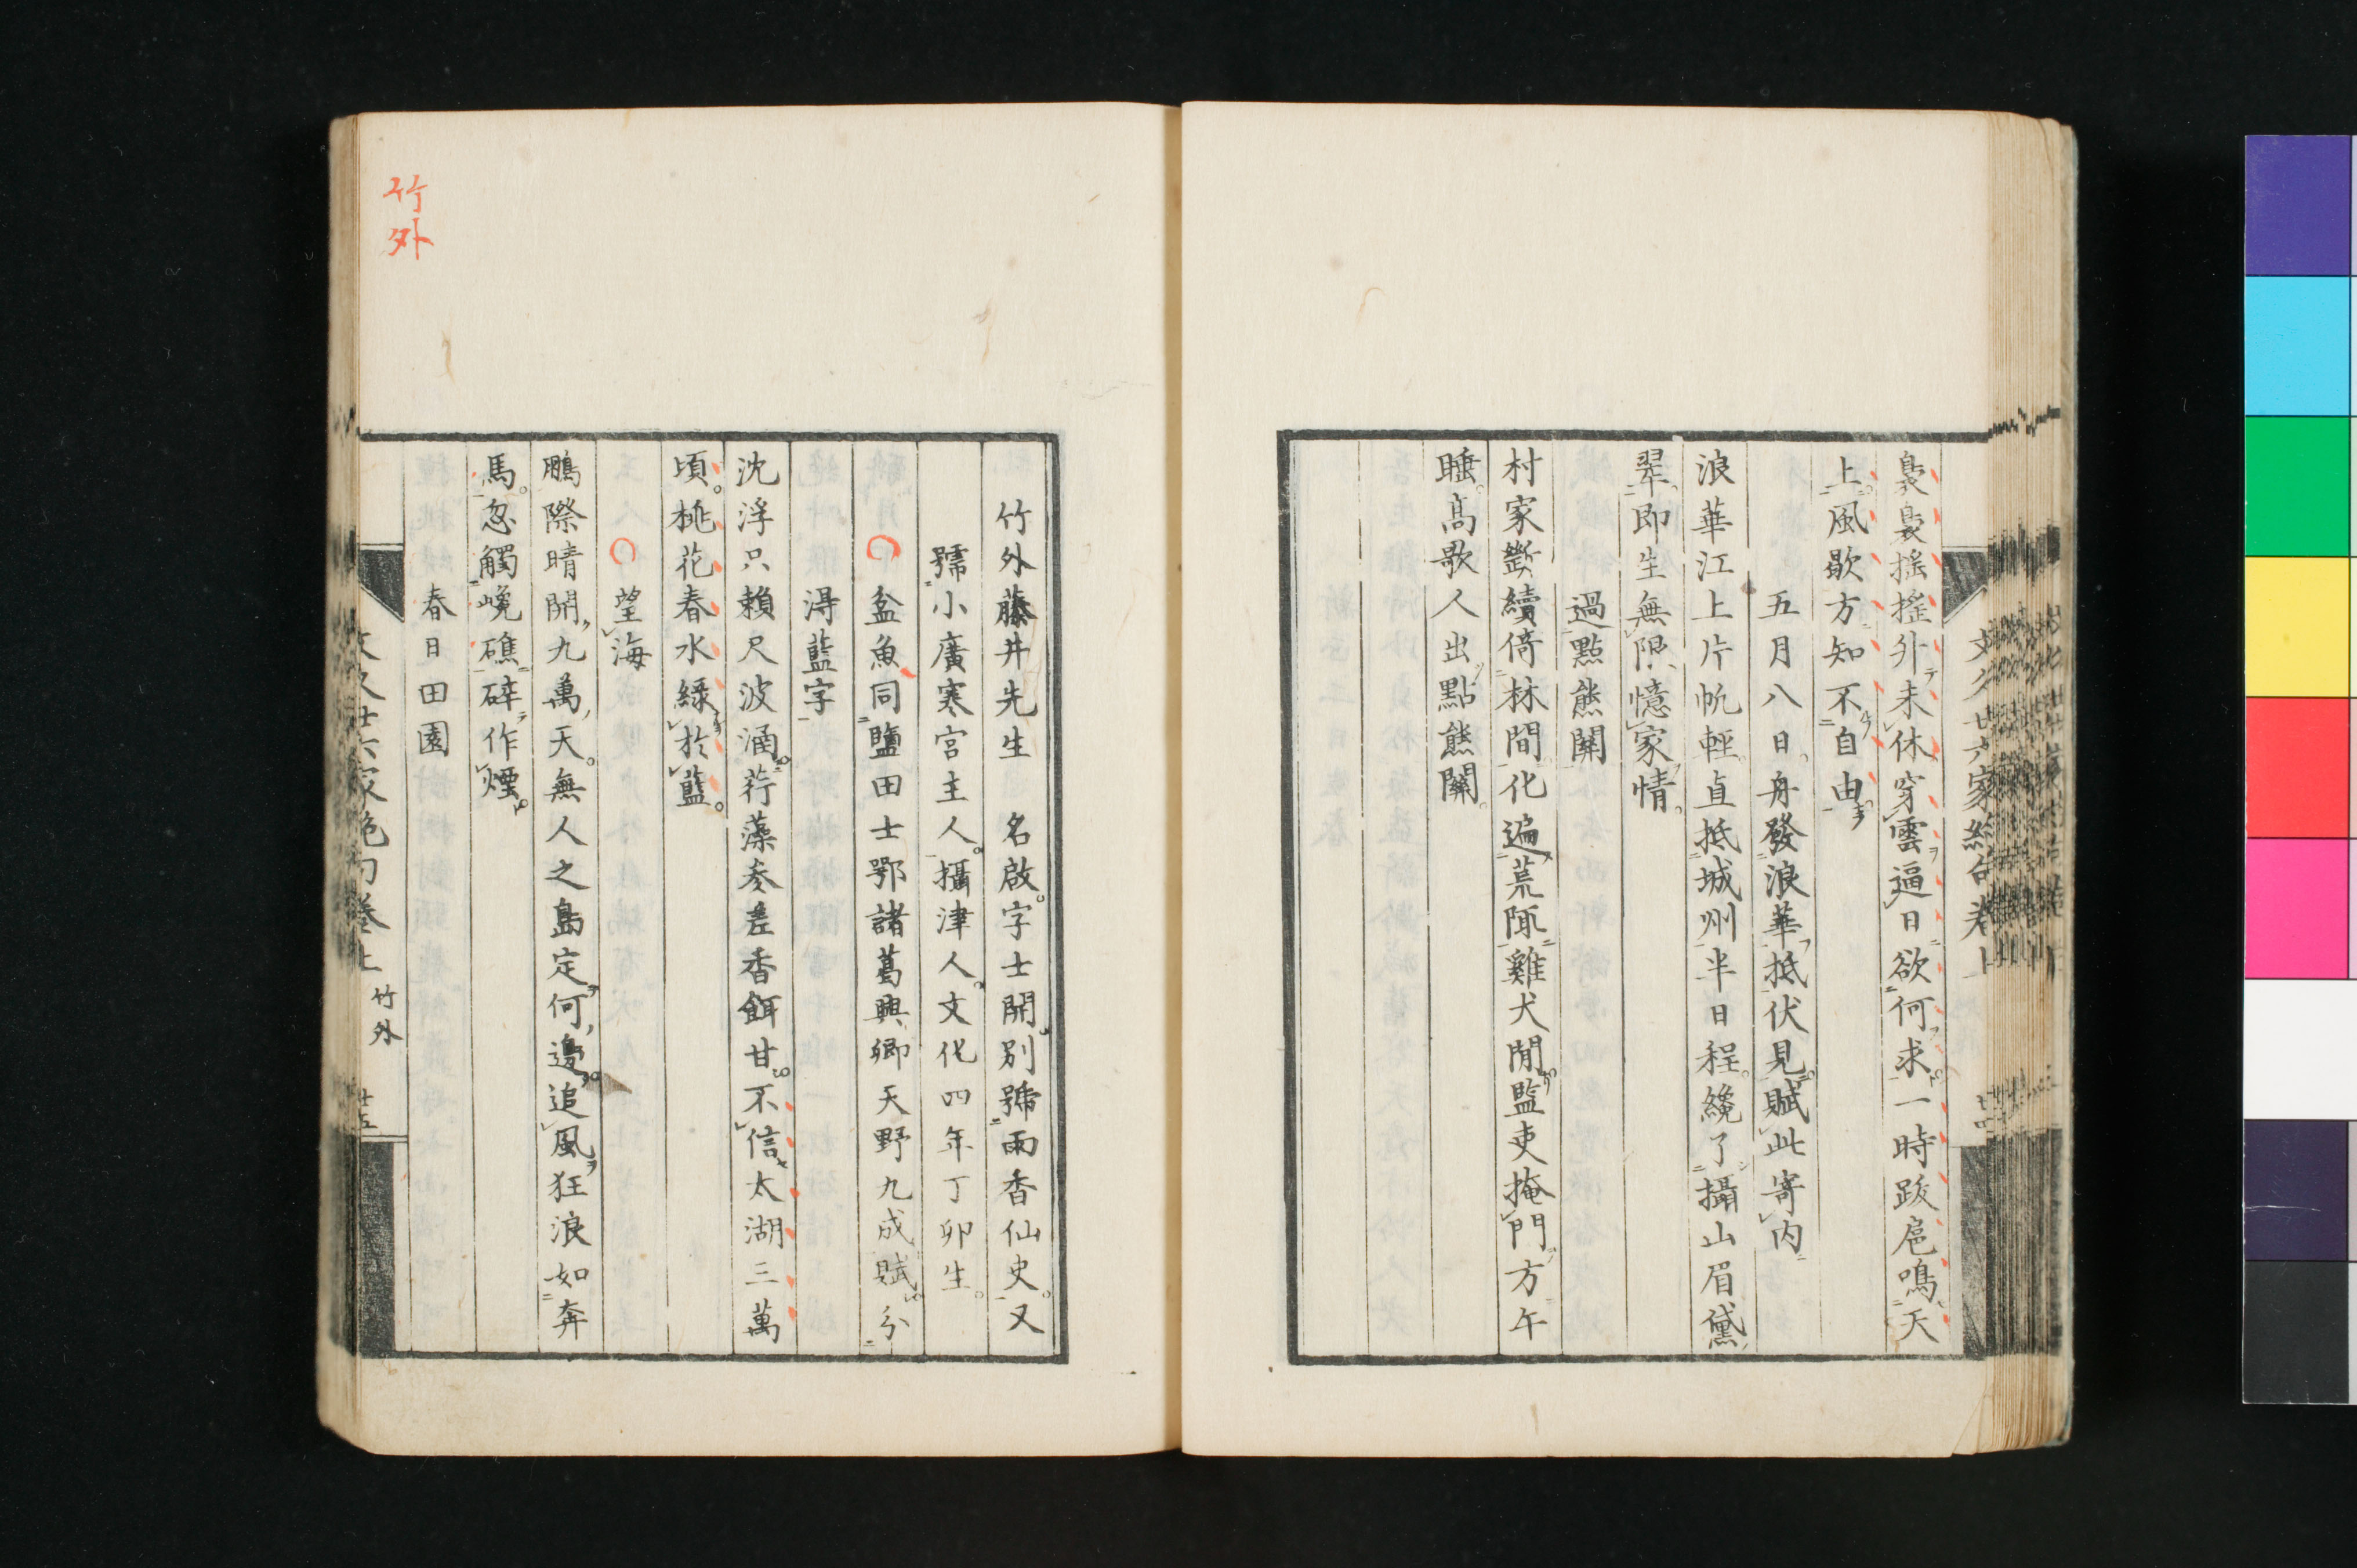 裊裊搖搖外未休穿雲逼日欲何求一時跋扈鳴天
上風歇方知不自由
五月八日舟發浪華抵伏見賦此寄內
浪華江上片帆輕直抵城州半日程纔了攝山眉黛
翠即生無限憶家情
過點熊關
村家斷續倚林間化遍荒陬雞犬閒監吏掩門方午
睡高歌人出點熊關
竹外藤井先生 名啟字士開別號雨香仙史又
號小廣寒宮主人攝津人文化四年丁卯生
盆魚同鹽田士鄂諸葛興卿天野九成賦分
得藍字
沈浮只賴尺波涵荇藻參差香餌甘不信太湖三萬
頃桃花春水綠於藍
望海
鵬際晴開九萬天無人之島定何邊追風狂浪如奔
馬忽觸巉礁碎作煙
春日田園
文久廿六家絕句卷上 竹外 廿五
竹外